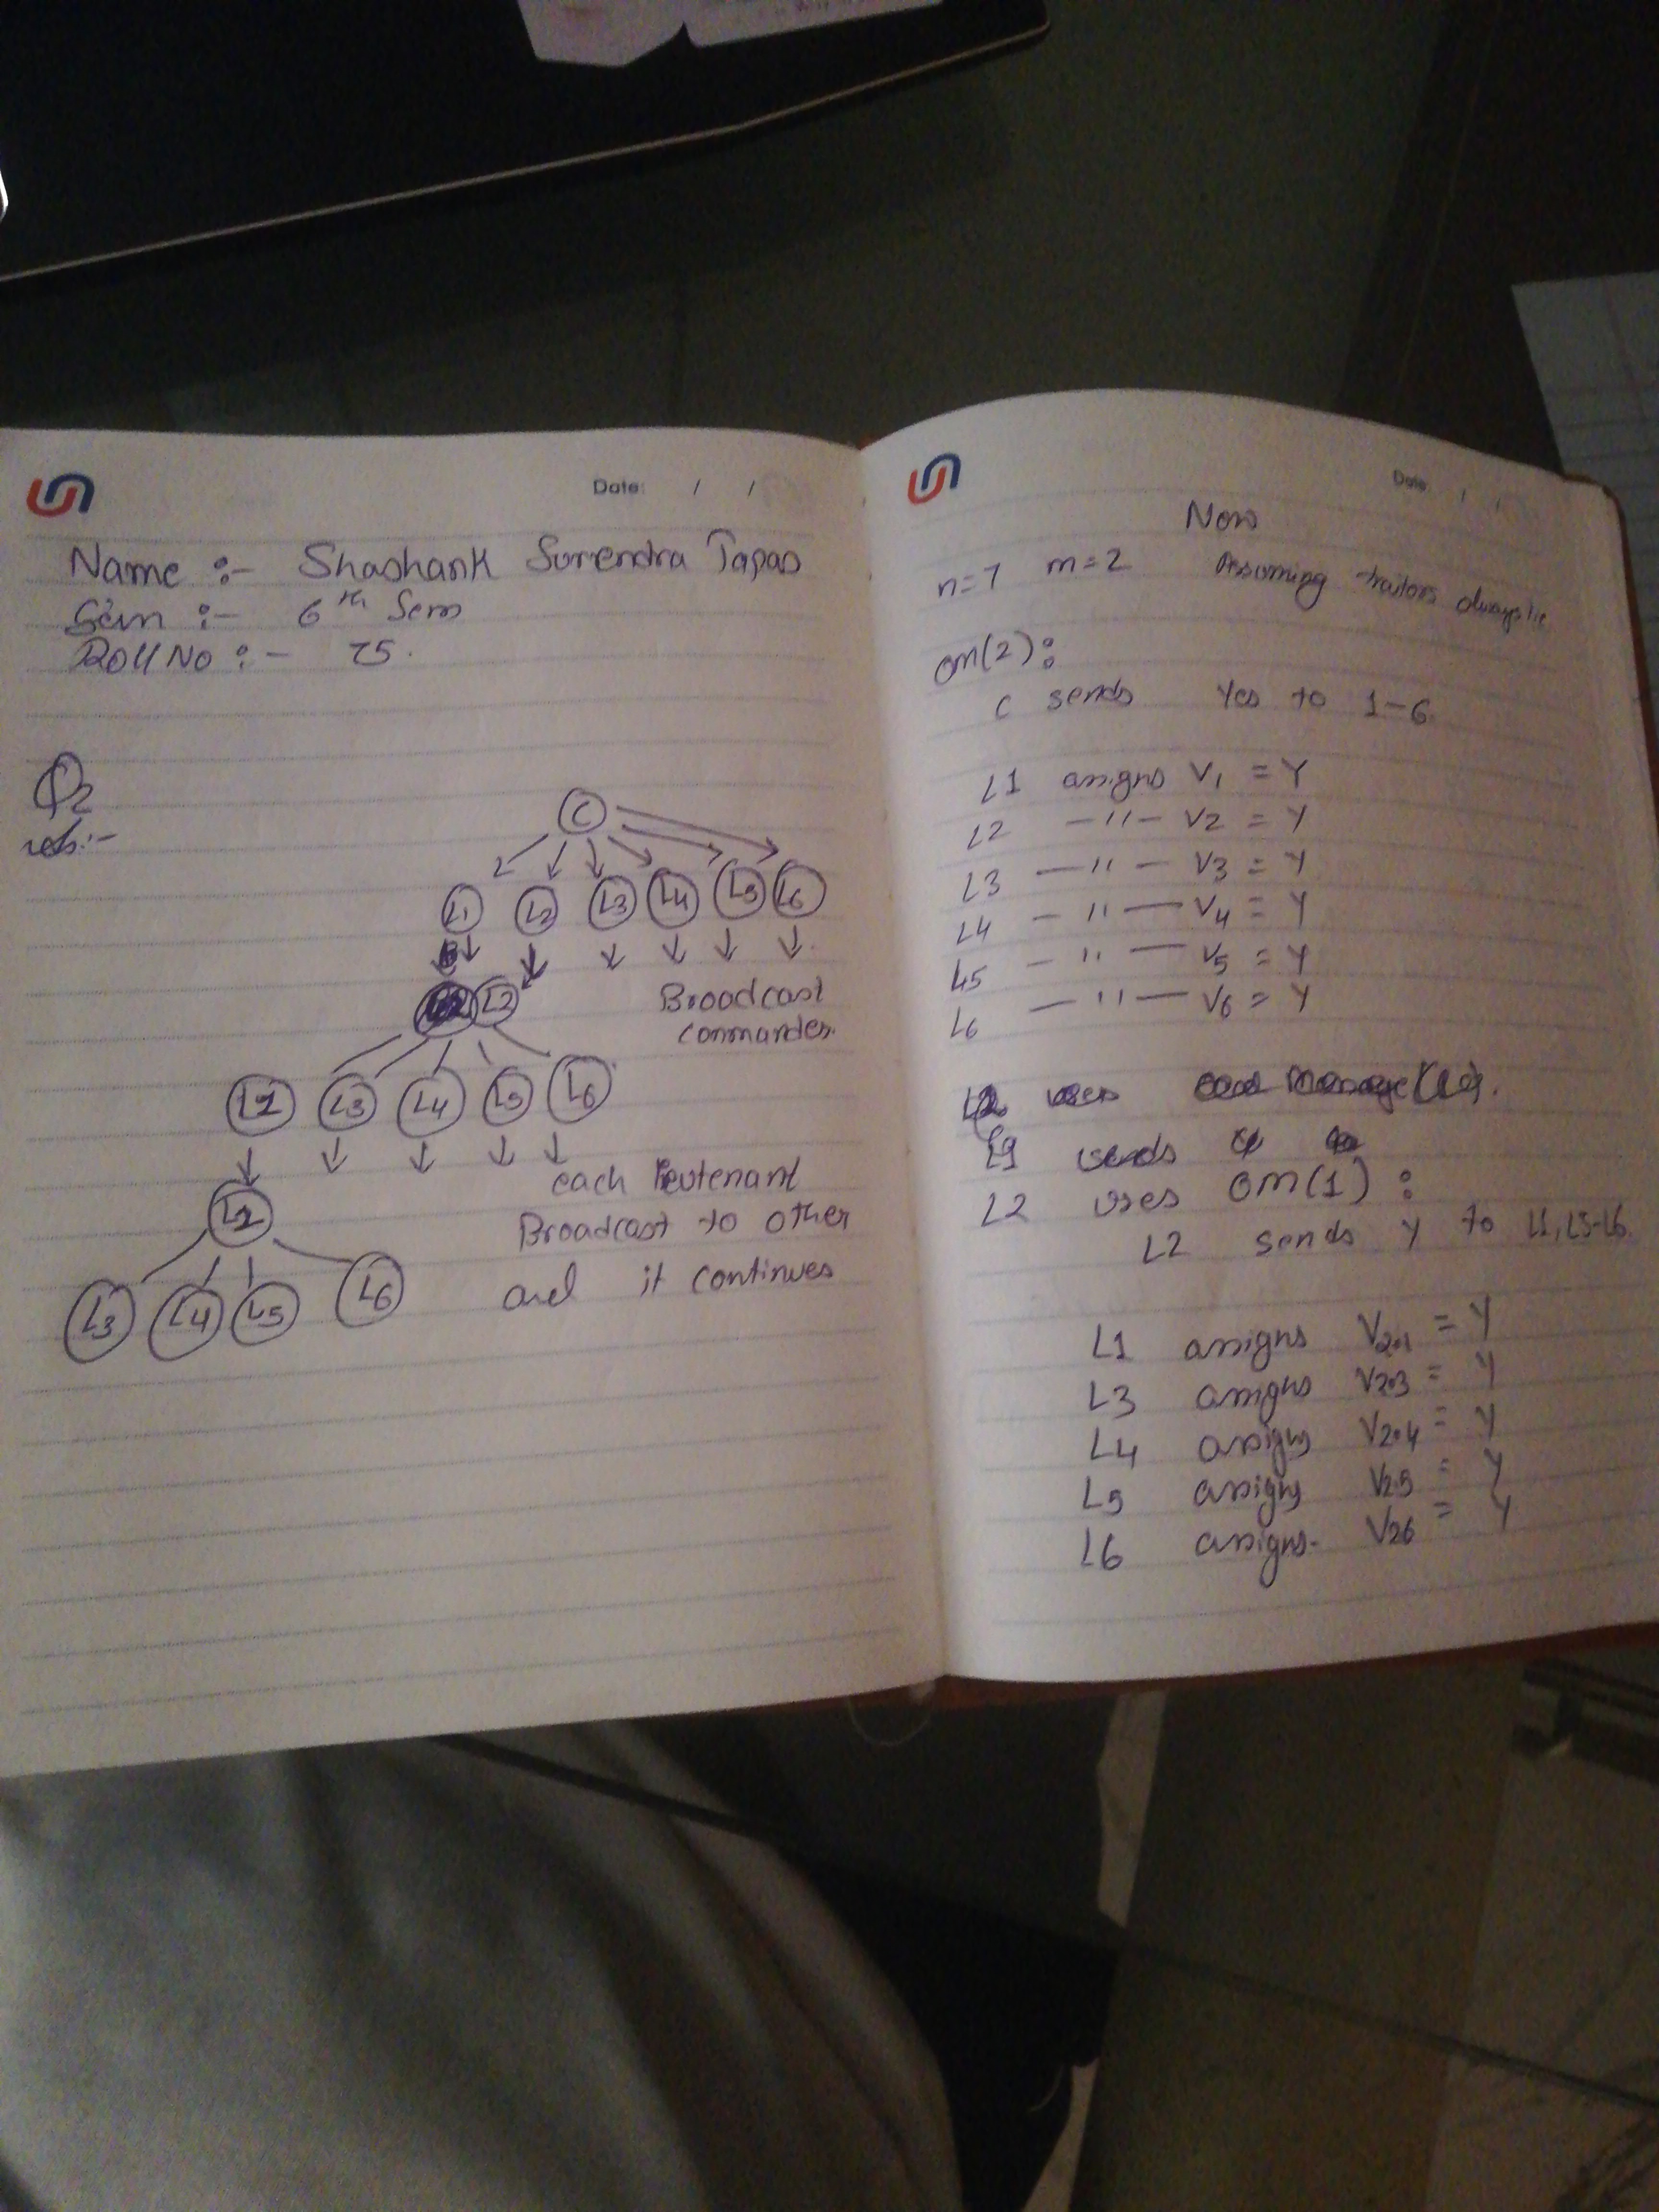 Date: / /
Name :- Shashank Surendra Tapas
Sem :- 6th Sem
Roll No :- 75.
Q2
C
L1 L2 L3 L4 L5 L6
L2
Broadcast
commander.
L1 L3 L4 L5 L6
each lieutenant
L2
Broadcast to other
and it continues
L3 L4 L5 L6
Date: / /
Now
n=7 m=2 Assuming traitors always lie
om(2):
C sends Yes to 1-6
L1 assigns V1 = Y
L2 -"- V2 = Y
L3 -"- V3 = Y
L4 -"- V4 = Y
L5 -"- V5 = Y
L6 -"- V6 = Y
sends
L2 uses om(1) :
L2 sends Y to L1, L3-L6.
L1 assigns V2.1 = Y
L3 assigns V2.3 = Y
L4 assigns V2.4 = Y
L5 assigns V2.5 = Y
L6 assigns. V26 = Y